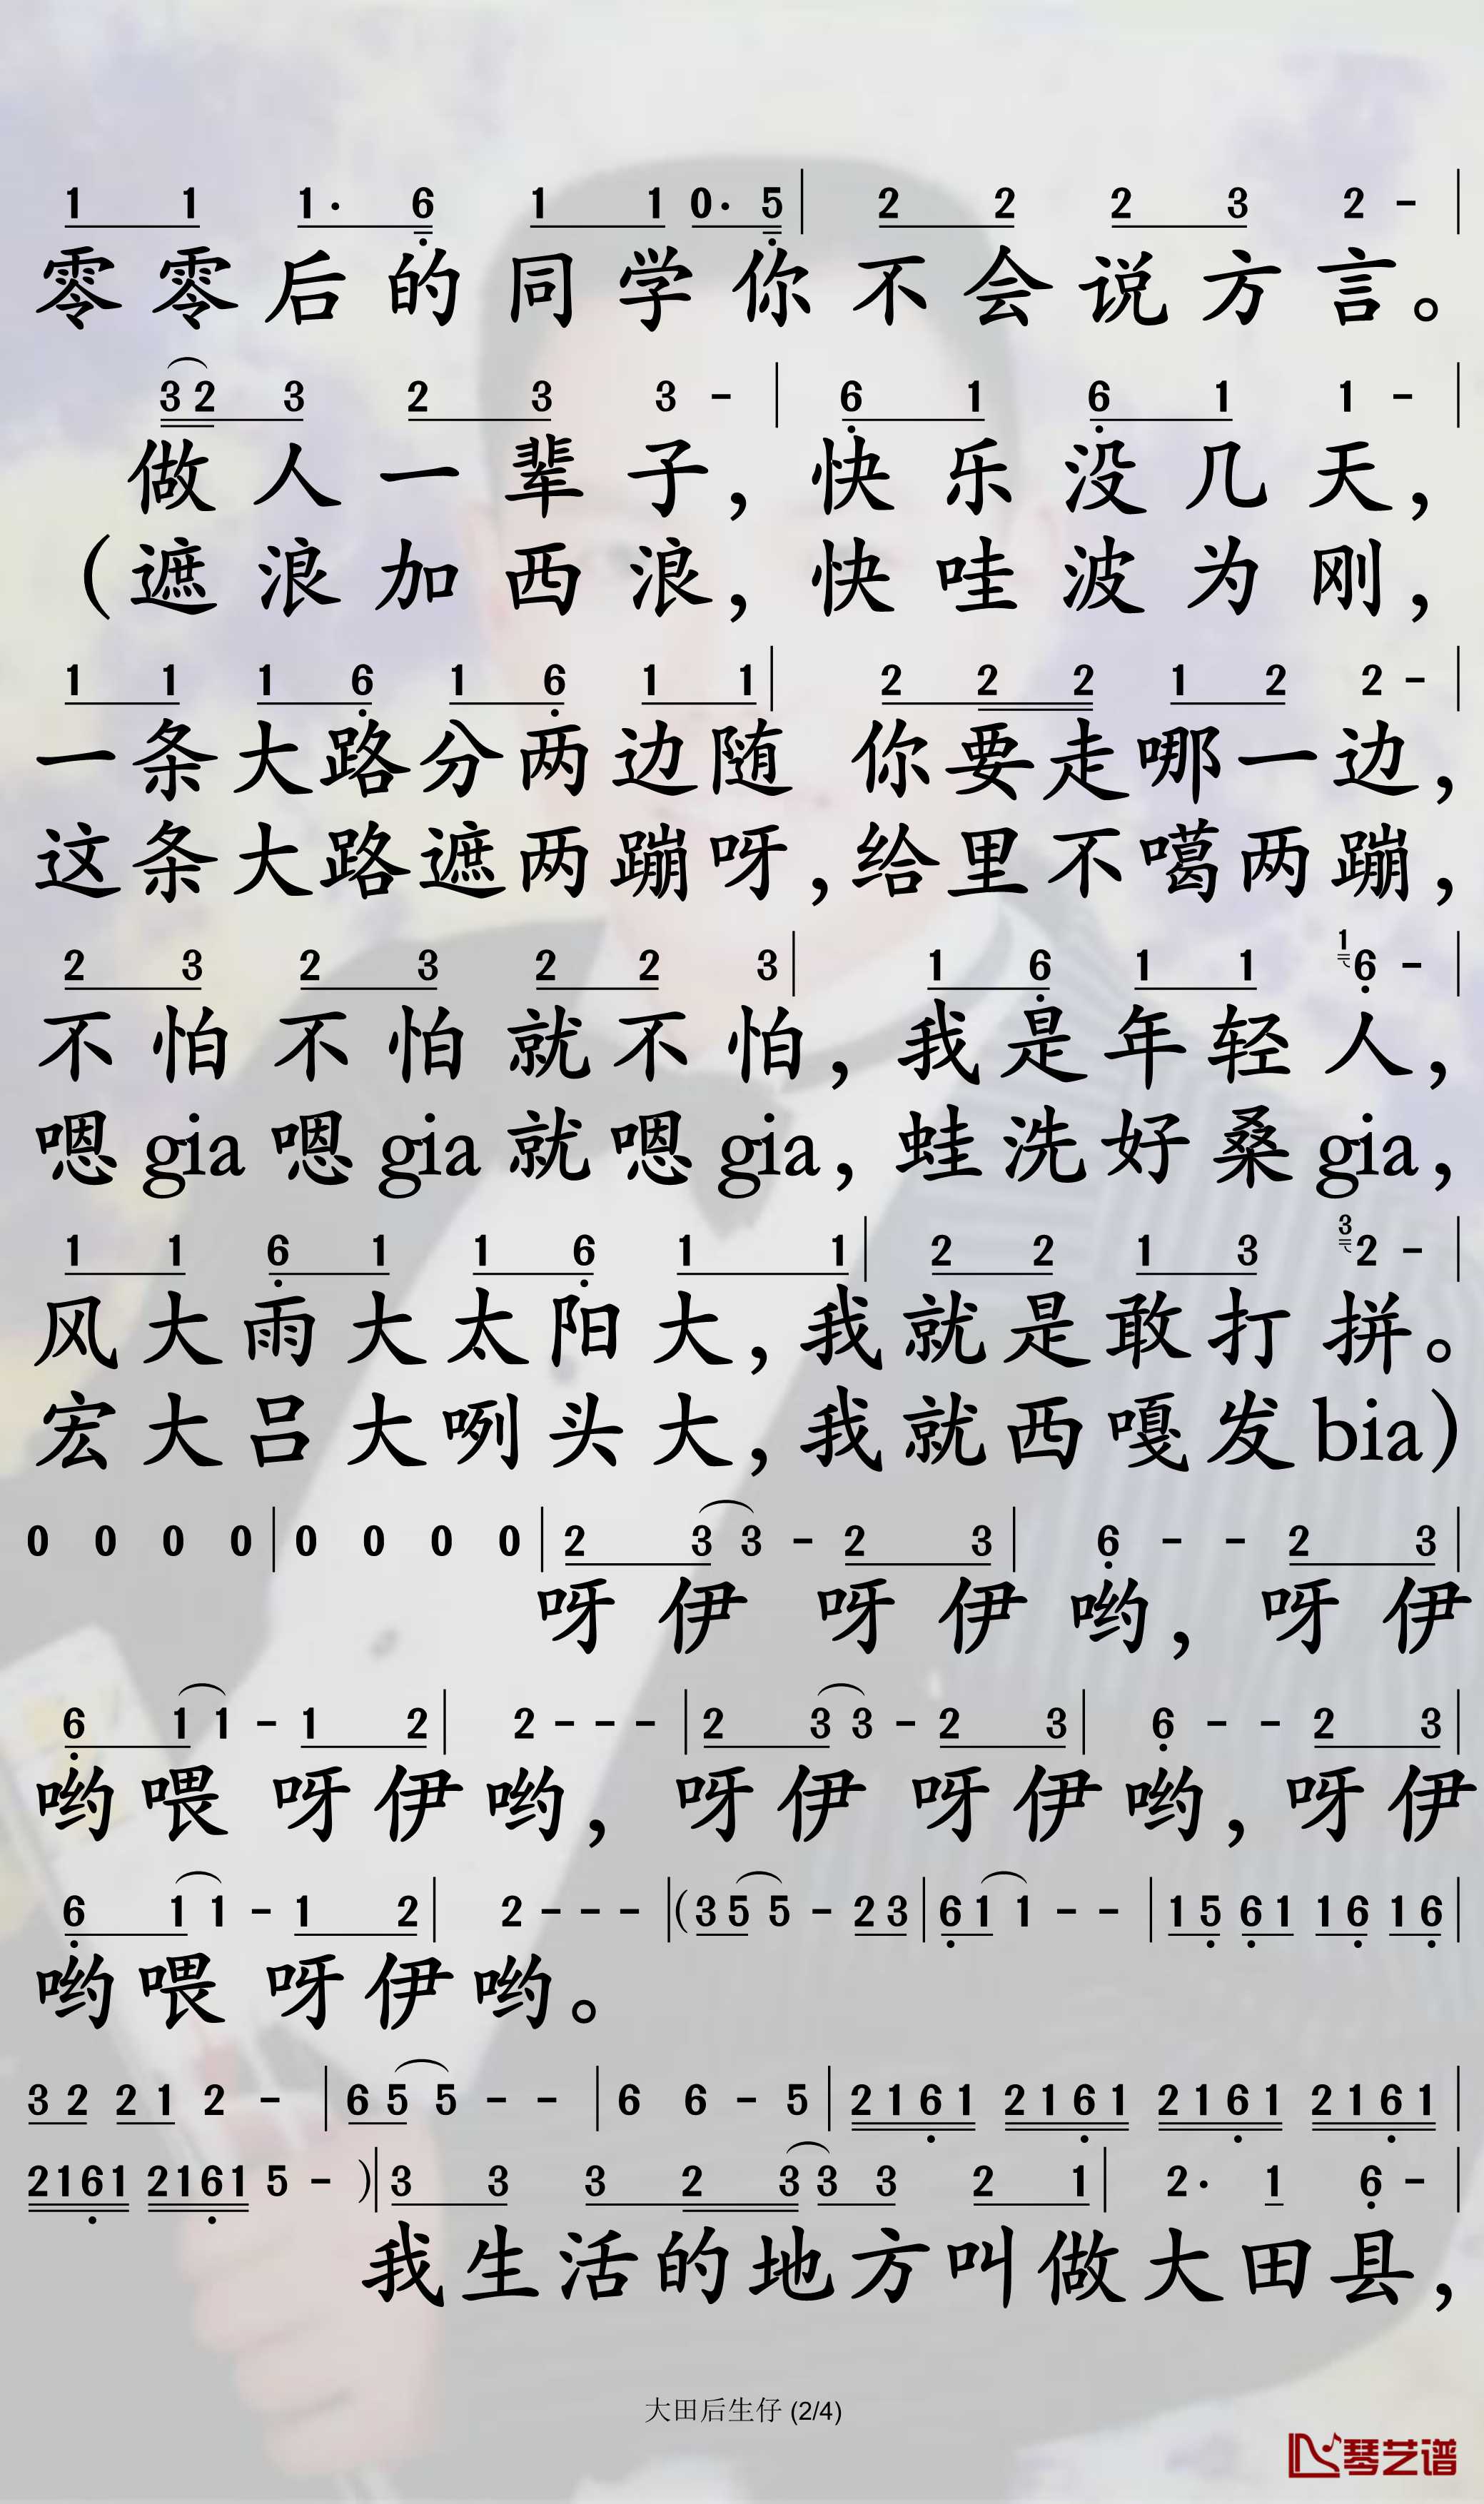 1 1 1· 6 1 1 0· 5 | 2 2 2 3 2 - |
零零后的同学你不会说方言。
3 2 3 2 3 3 - | 6 1 6 1 1 - |
做人一辈子，快乐没几天，
（遮浪加西浪，快哇波为刚，
1 1 1 6 1 6 1 1 | 2 2 2 1 2 2 - |
一条大路分两边随 你要走哪一边，
这条大路遮两蹦呀，给里不噶两蹦，
2 3 2 3 2 2 3 | 1 6 1 1 1 6 - |
不怕不怕就不怕，我是年轻人，
嗯gia嗯gia就嗯gia，蛙洗好桑gia，
1 1 6 1 1 6 1 1 | 2 2 1 3 3 2 - |
风大雨大太阳大，我就是敢打拼。
宏大吕大咧头大，我就西嘎发bia）
0 0 0 0 | 0 0 0 0 | 2 3 3 - 2 3 | 6 - - 2 3 |
呀伊 呀伊哟，呀伊
6 1 1 - 1 2 | 2 - - - | 2 3 3 - 2 3 | 6 - - 2 3 |
哟喂 呀伊哟，呀伊 呀伊哟，呀伊
6 1 1 - 1 2 | 2 - - - | (3 5 5 - 2 3 | 6 1 1 - - | 1 5 6 1 1 6 1 6 |
哟喂 呀伊哟。
3 2 2 1 2 - | 6 5 5 - - | 6 6 - 5 | 2 1 6 1 2 1 6 1 2 1 6 1 2 1 6 1 |
2 1 6 1 2 1 6 1 5 - ) | 3 3 3 2 3 3 3 2 1 | 2· 1 6 - |
我生活的地方叫做大田县，
大田后生仔 (2/4)
琴艺谱